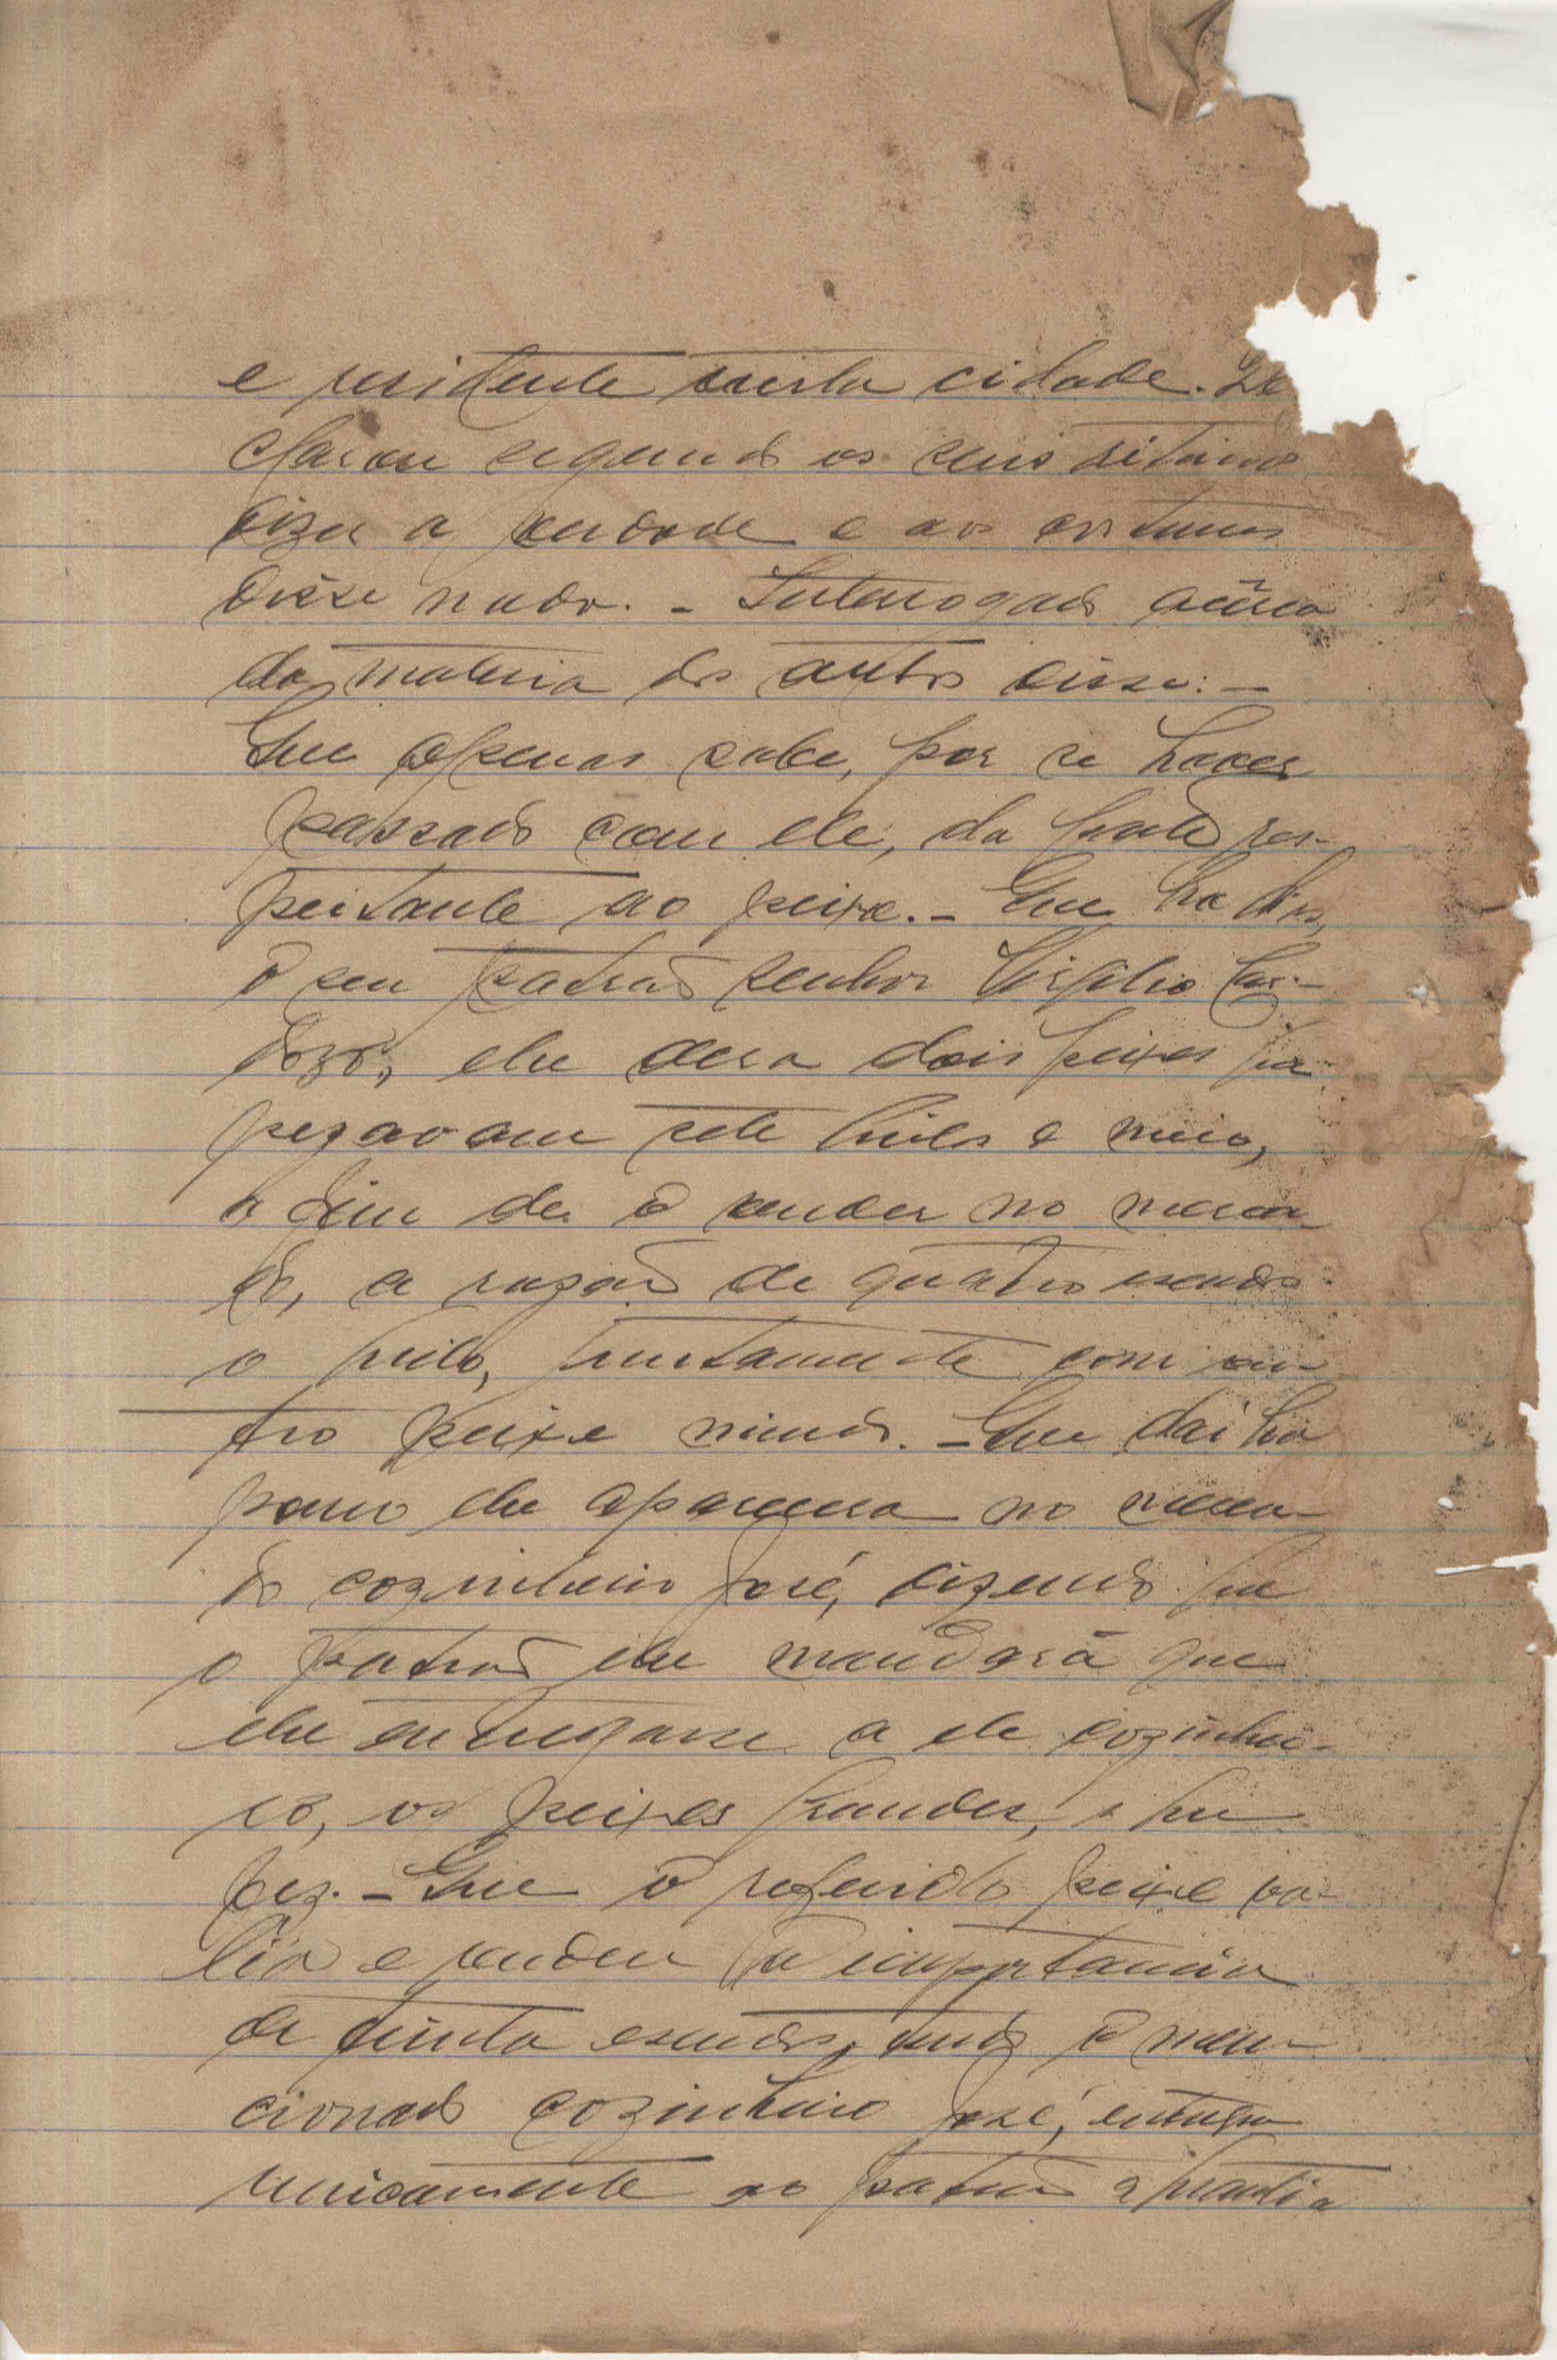 e residente nesta cidade. De
clarou segundo os seus ditames
dizer a verdade e aos costumes
disse nada. - Interrogado acêrca
da materia dos autos disse: -
Que apenas sabe, por se haver
passado com ele, da parte res-
peitante ao peixe. - Que ha dias,
o seu patrão senhor Virgilio Car-
dozo, lhe dera dois peixes que
pezavam sete kilos e meio,
a fim de o vender no merca-
do, a razão de quatro escudos
o kilo, juntamente com ou-
tro peixe miudo. - Que dai ha
pouco lhe aparecera no merca-
do cozinheiro José, dizendo que
o patrão lhe mandára que
lhe entregasse a ele cozinhei-
ro, os peixes grandes, o que
fez. - Que o referido peixe va-
lia e rendeu a importancia
de trinta escudos, tendo o men-
cionado cozinheiro José, entregue
unicamente ao patrão a quantia